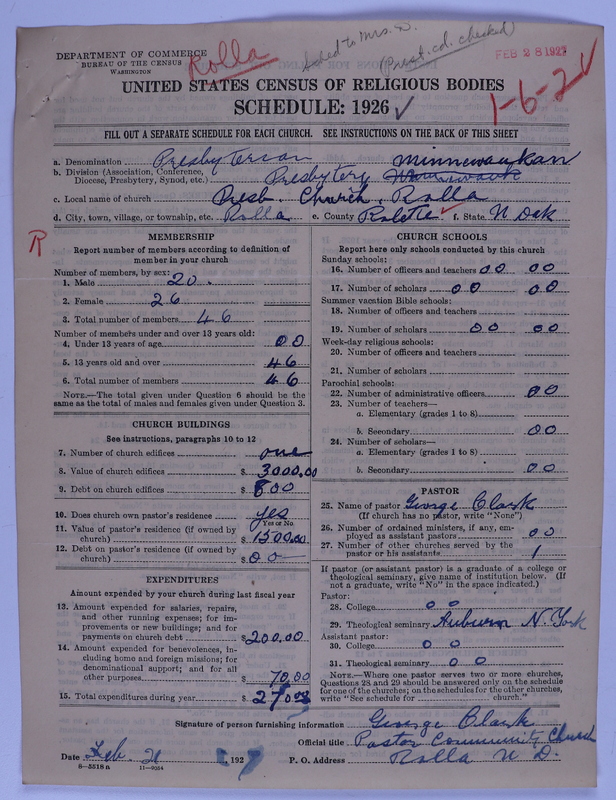 Rolla
to Mrs. D.
(Presb. cd. checked)
FEB 28 1927
1-6-2
DEPARTMENT OF COMMERCE
BUREAU OF THE CENSUS
WASHINGTON
UNITED STATES CENSUS OF RELIGIOUS BODIES
SCHEDULE: 1926 ✓
FILL OUT A SEPARATE SCHEDULE FOR EACH CHURCH. SEE INSTRUCTIONS ON THE BACK OF THIS SHEET
a. Denomination Presbyterian
b. Division (Association, Conference, Diocese, Presbytery, Synod, etc.) Presbytery Minnewaukan
c. Local name of church Presb. Church, Rolla
d. City, town, village, or township, etc. Rolla e. County Rolette f. State N Dak
R
MEMBERSHIP
Report number of members according to definition of
member in your church
Number of members, by sex:
1. Male 20.
2. Female 26
3. Total number of members 46
Number of members under and over 13 years old:
4. Under 13 years of age 00
5. 13 years old and over 46
6. Total number of members 46
NOTE.—The total given under Question 6 should be the
same as the total of males and females given under Question 3.
CHURCH BUILDINGS
See instructions, paragraphs 10 to 12
7. Number of church edifices one
8. Value of church edifices $3000.00
9. Debt on church edifices $800
10. Does church own pastor's residence yes
Yes or No
11. Value of pastor's residence (if owned by
church) $1500.00
12. Debt on pastor's residence (if owned by
church) $00
EXPENDITURES
Amount expended by your church during last fiscal year
13. Amount expended for salaries, repairs,
and other running expenses; for im-
provements or new buildings; and for
payments on church debt $200.00
14. Amount expended for benevolences, in-
cluding home and foreign missions; for
denominational support; and for all
other purposes $70.00
15. Total expenditures during year $270.00
CHURCH SCHOOLS
Report here only schools conducted by this church
Sunday schools:
16. Number of officers and teachers 00 00
17. Number of scholars 00 00
Summer vacation Bible schools:
18. Number of officers and teachers
19. Number of scholars 00 00
Week-day religious schools:
20. Number of officers and teachers
21. Number of scholars
Parochial schools:
22. Number of administrative officers 00
23. Number of teachers—
a. Elementary (grades 1 to 8)
b. Secondary 00
24. Number of scholars—
a. Elementary (grades 1 to 8)
b. Secondary 00
PASTOR
25. Name of pastor George Clark
(If church has no pastor, write "None")
26. Number of ordained ministers, if any, em-
ployed as assistant pastors 00
27. Number of other churches served by the
pastor or his assistants 1
If pastor (or assistant pastor) is a graduate of a college or
theological seminary, give name of institution below. (If
not a graduate, write "No" in the space indicated.)
Pastor:
28. College 00
29. Theological seminary Auburn N. York
Assistant pastor:
30. College 00
31. Theological seminary 00
NOTE.—Where one pastor serves two or more churches,
Questions 28 and 29 should be answered only on the schedule
for one of the churches; on the schedules for the other churches,
write "See schedule for church."
Signature of person furnishing information George Clark
Official title Pastor Community Church
Date Feb. 21, 1927 P. O. Address Rolla N D.
8-5318a 11-9054